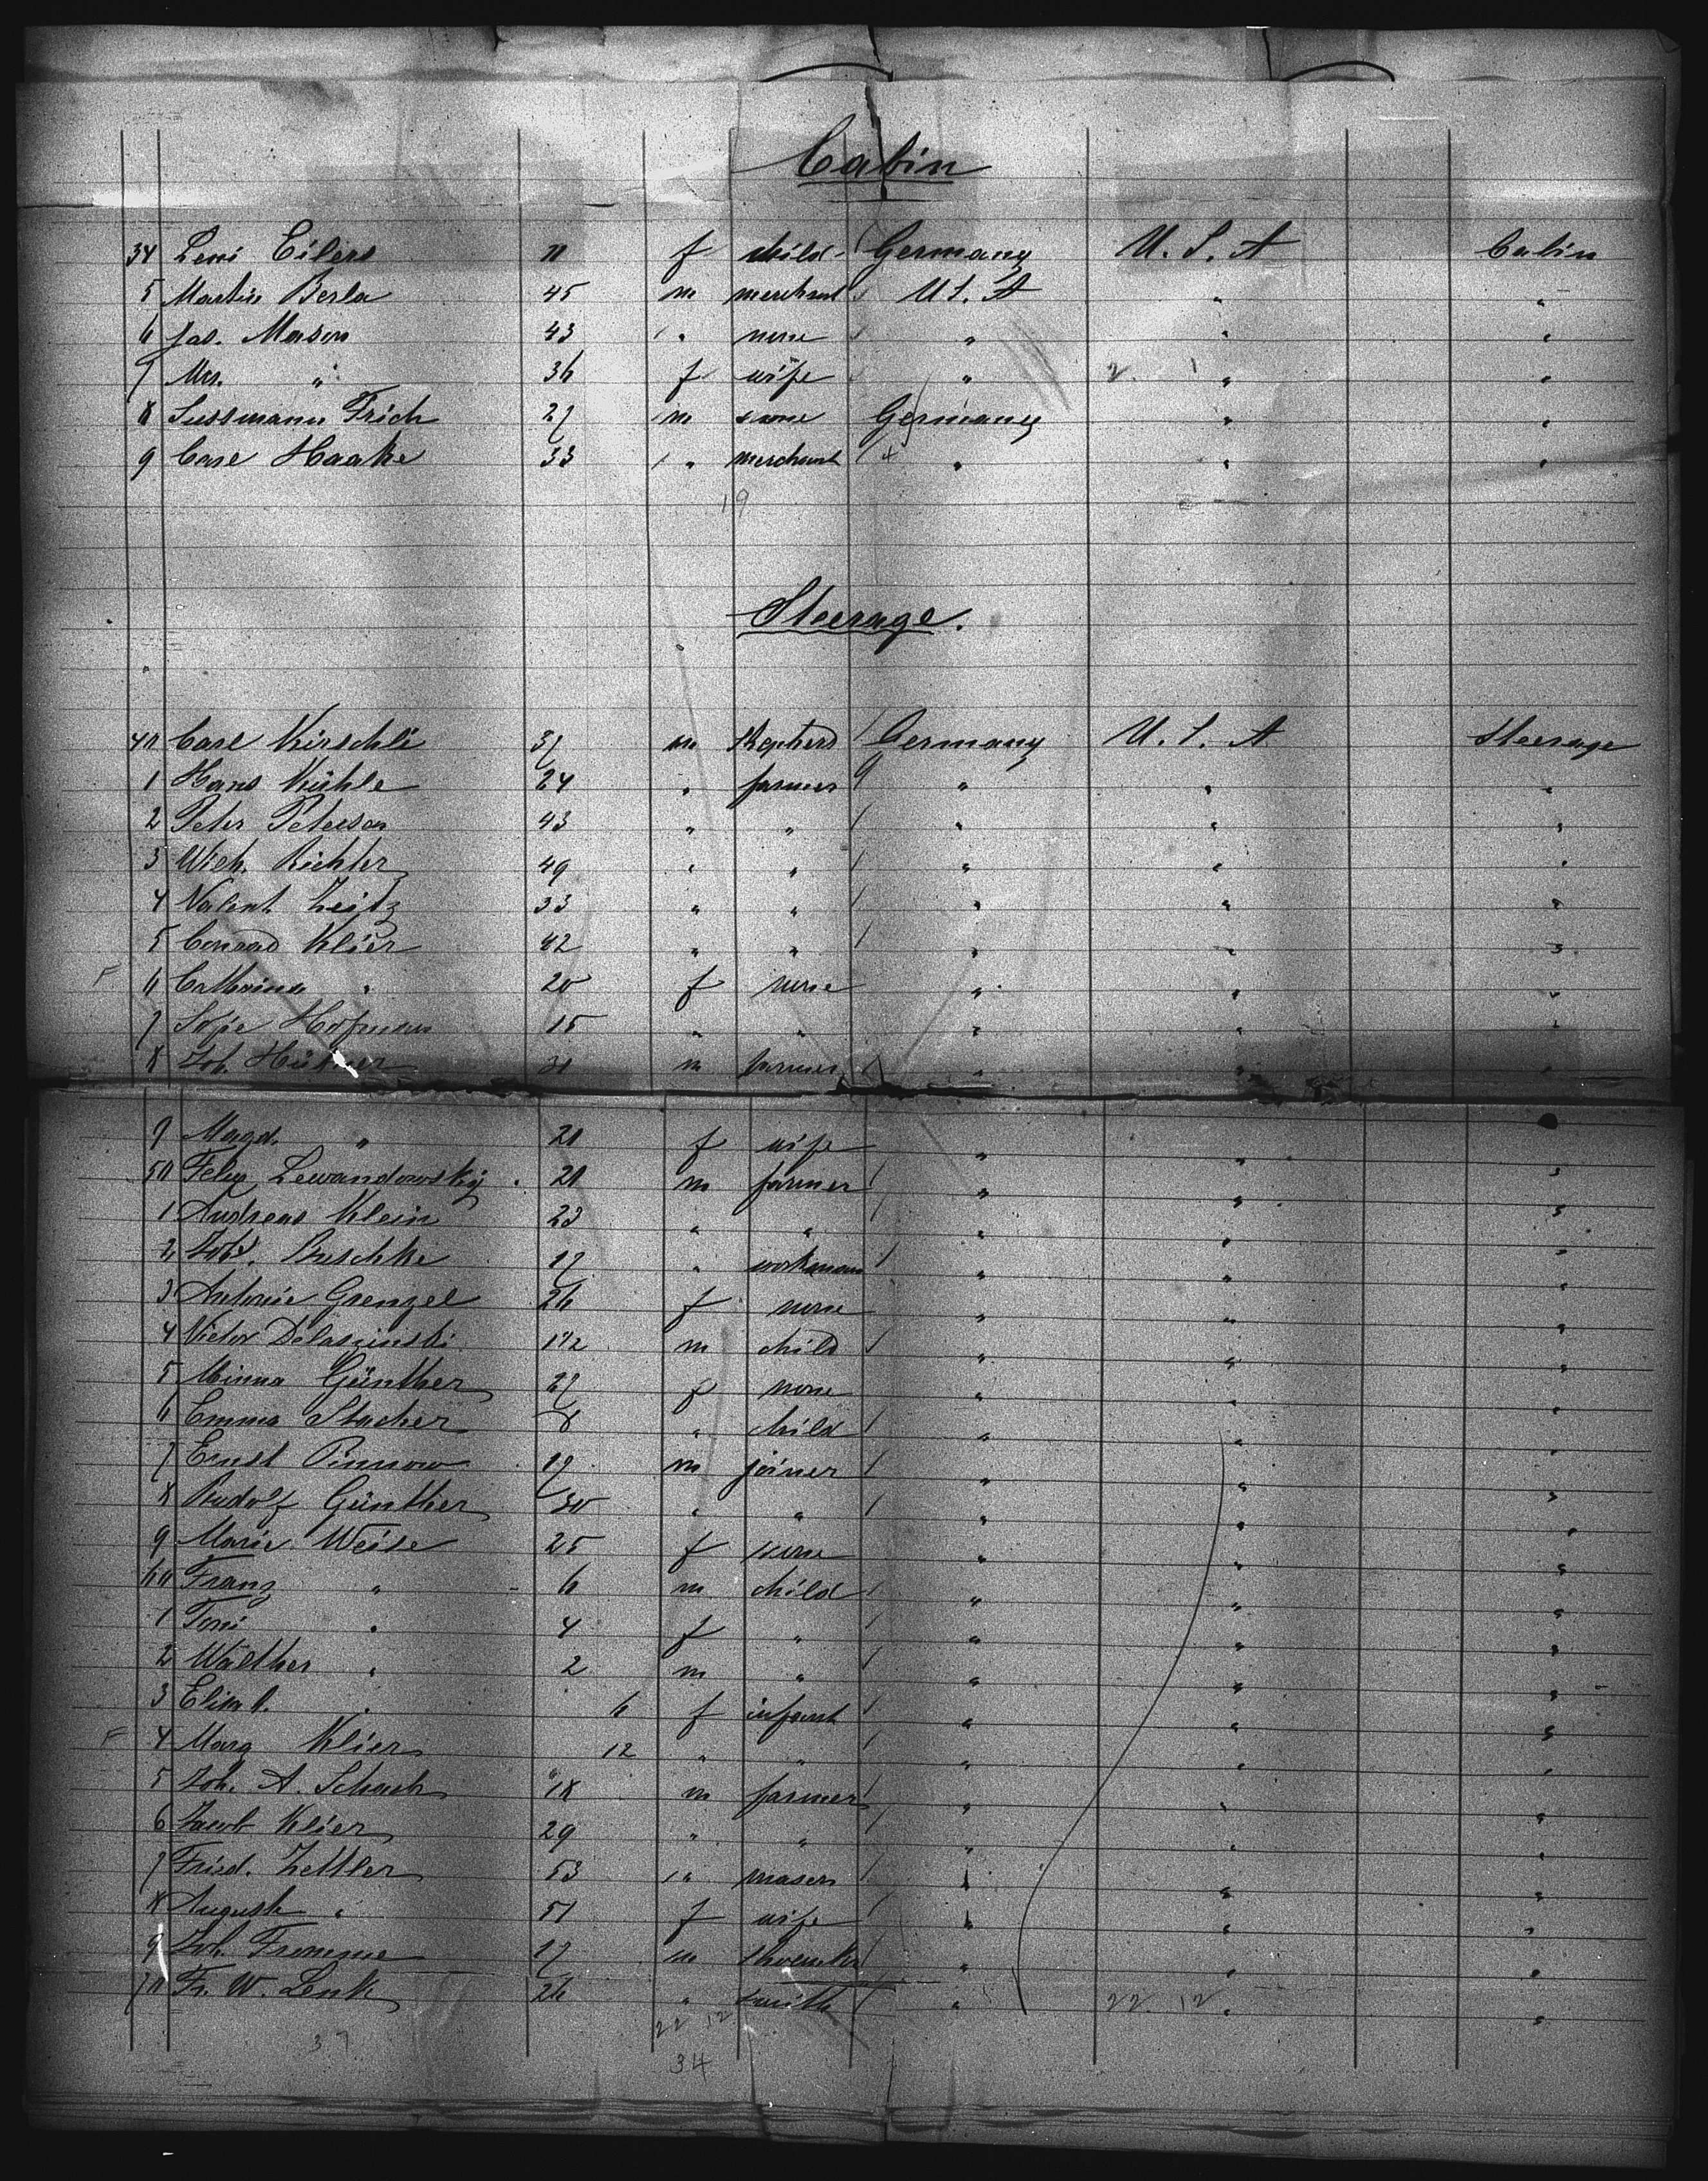 Cabin
34 Leni Eilers 11 f child Germany U. S. A Cabin
5 Martin Berla 45 m merchant U S. A " "
6 Jas. Mason 43 " none " " "
7 Mrs. " 36 f wife " 2 1 " "
8 Sussmann Frich 27 m none Germany " "
9 Carl Haake 33 " merchant 4 " " "
19
Steerage.
40 Carl Kirschli 37 m Germany U. S. A Steerage
1 Hans Kühle 24 " farmer 9 " " "
2 Peter Peterson 43 " " " " "
3 Wilh. Richter 49 " " " " "
4 Valent Zeitz 33 " " " " "
5 Conrad Klier 42 " " " " "
F 6 Catharina " 20 f none " " "
7 Sofie Hofman 15 " " " " "
8 Joh. Hübner m farmer " " "
9 Magd. " 20 f wife " " "
50 Felix Lewandowsky 20 m farmer " " "
1 Andreas Klein 23 " " " " "
2 Joh. Buschke 17 " workman " " "
3 Antonie Grenzel 26 f none " " "
4 Victor Delaszinski 1 1/2 m child " " "
5 Minna Günther 27 f none " " "
6 Emma Stacher 8 " child " " "
7 Ernst Pinnow 17 m joiner " " "
8 Rudolf Günther 30 " " " " "
9 Marie Weise 25 f none " " "
60 Franz " 6 m child " " "
1 Toni " 4 f " " " "
2 Walther " 2 m " " " "
3 Elisab. " 6 f infant " " "
F 4 Marg Klier 12 " " " " "
5 Joh. A. Schach 18 m farmer " " "
6 Jacob Klier 29 " " " " "
7 Fried. Zettler 53 " mason " " "
8 August " 51 f wife " " "
9 Joh. Fromme 17 m " " "
70 Fr. W. Lenk 26 " smith " 22 12 " "
37 22 12
34